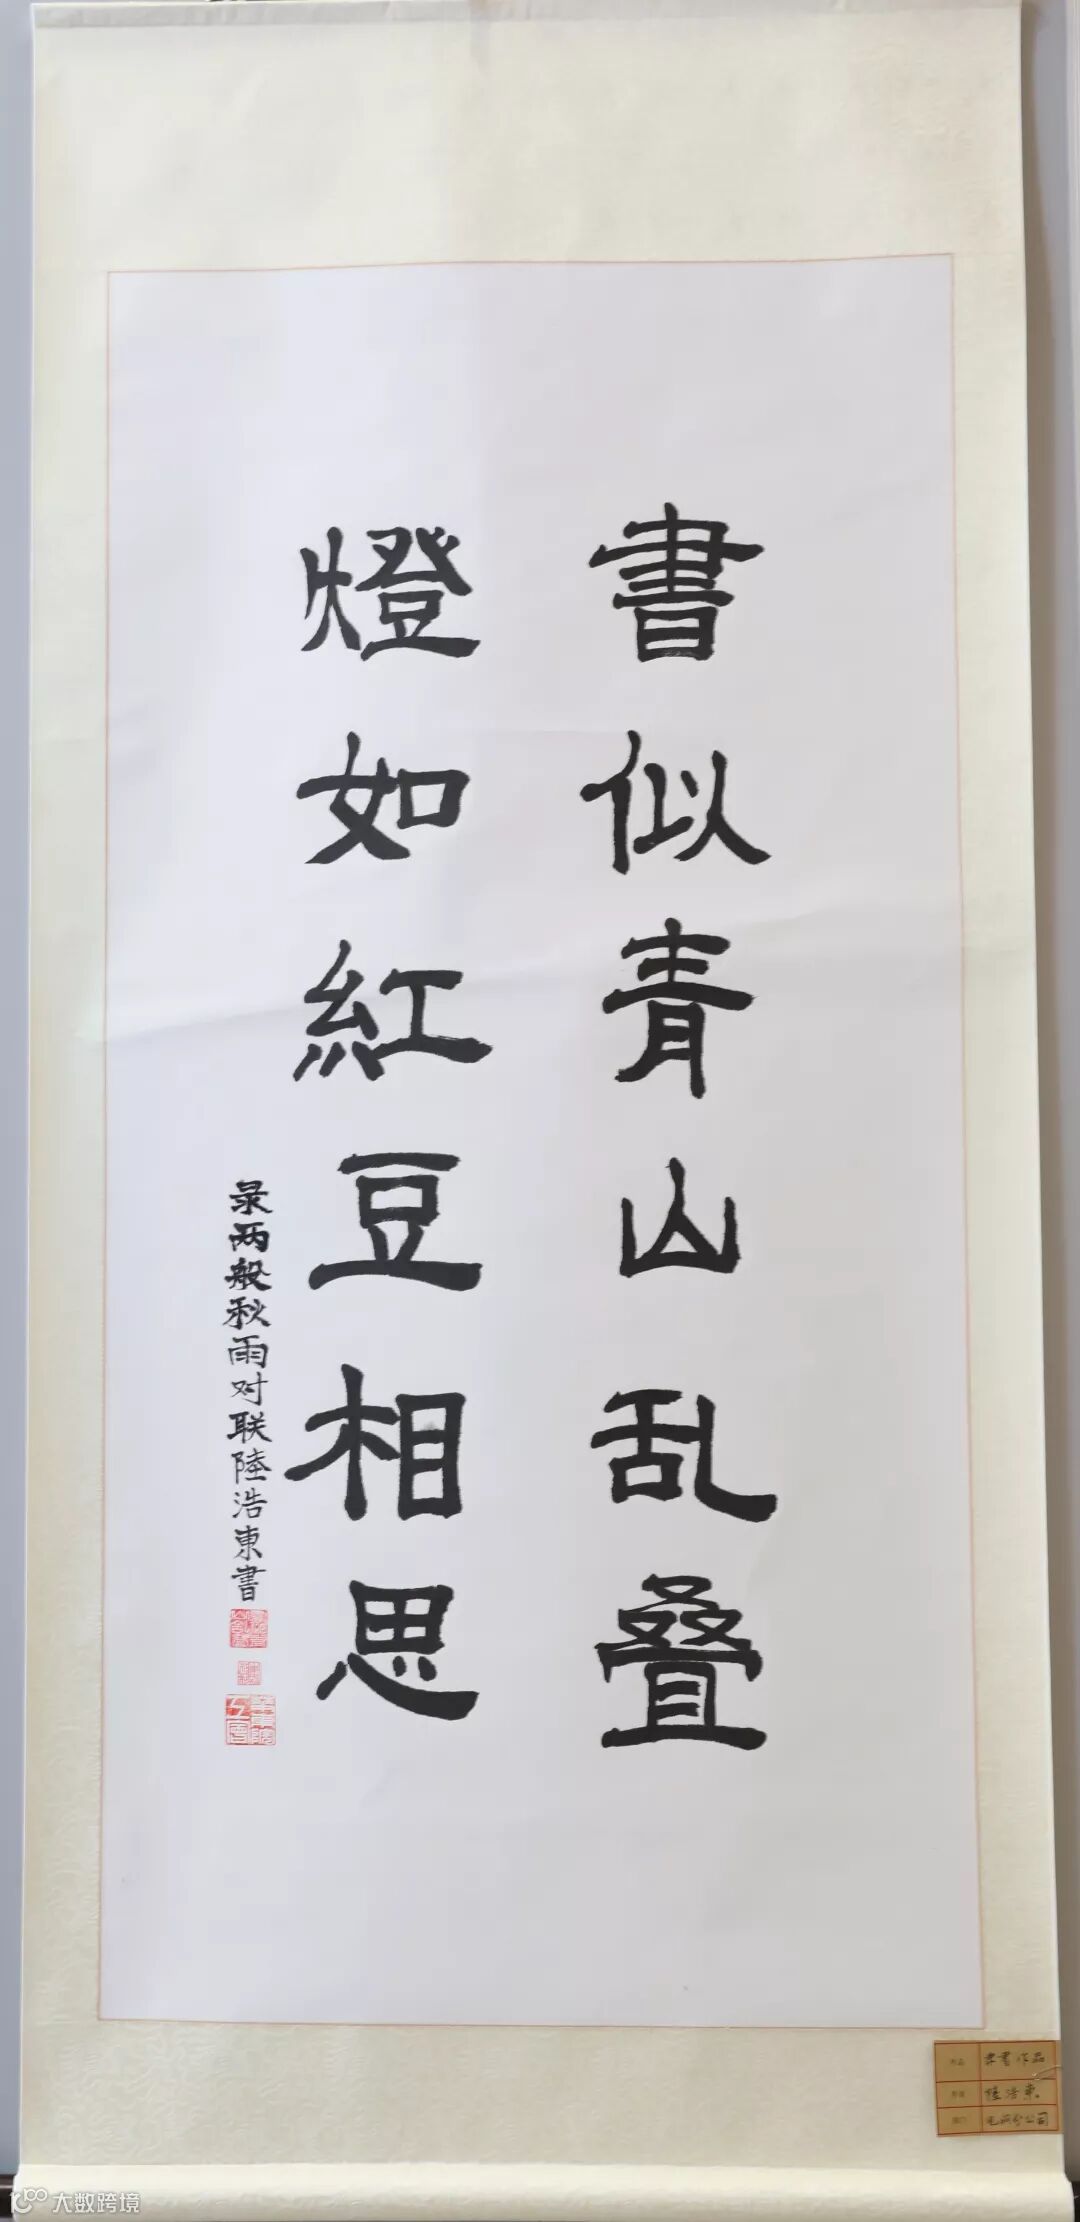 書似青山乱叠
燈如紅豆相思
录两般秋雨对联陸浩東書
作品 隶书作品
作者 陸浩東
部门 分公司
大数跨境